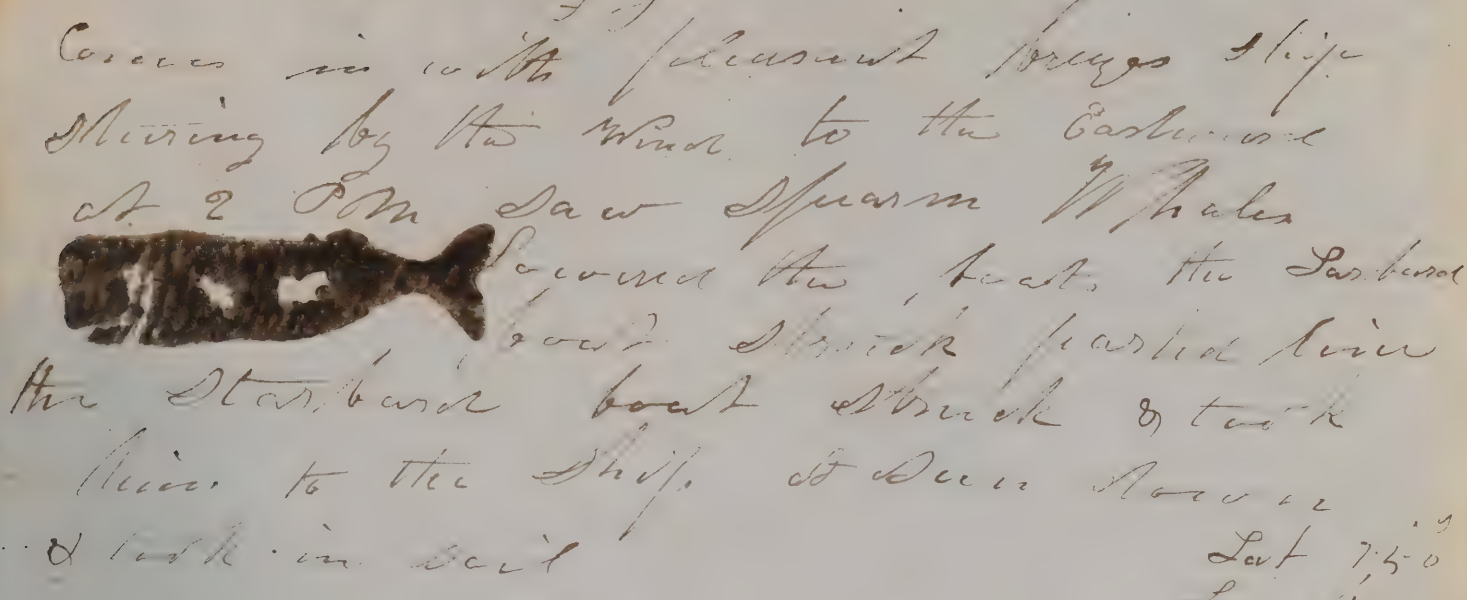 Comes in with pleasant breizes Ship
Stearing by the Wind to the Eastward
at 2 PM Saw Spearm Whales
Lowered the boats the Larbard
boat Struck parted line
the Starbard boat Struck & took
him to the Ship at Sun down
& took in sail
Lat